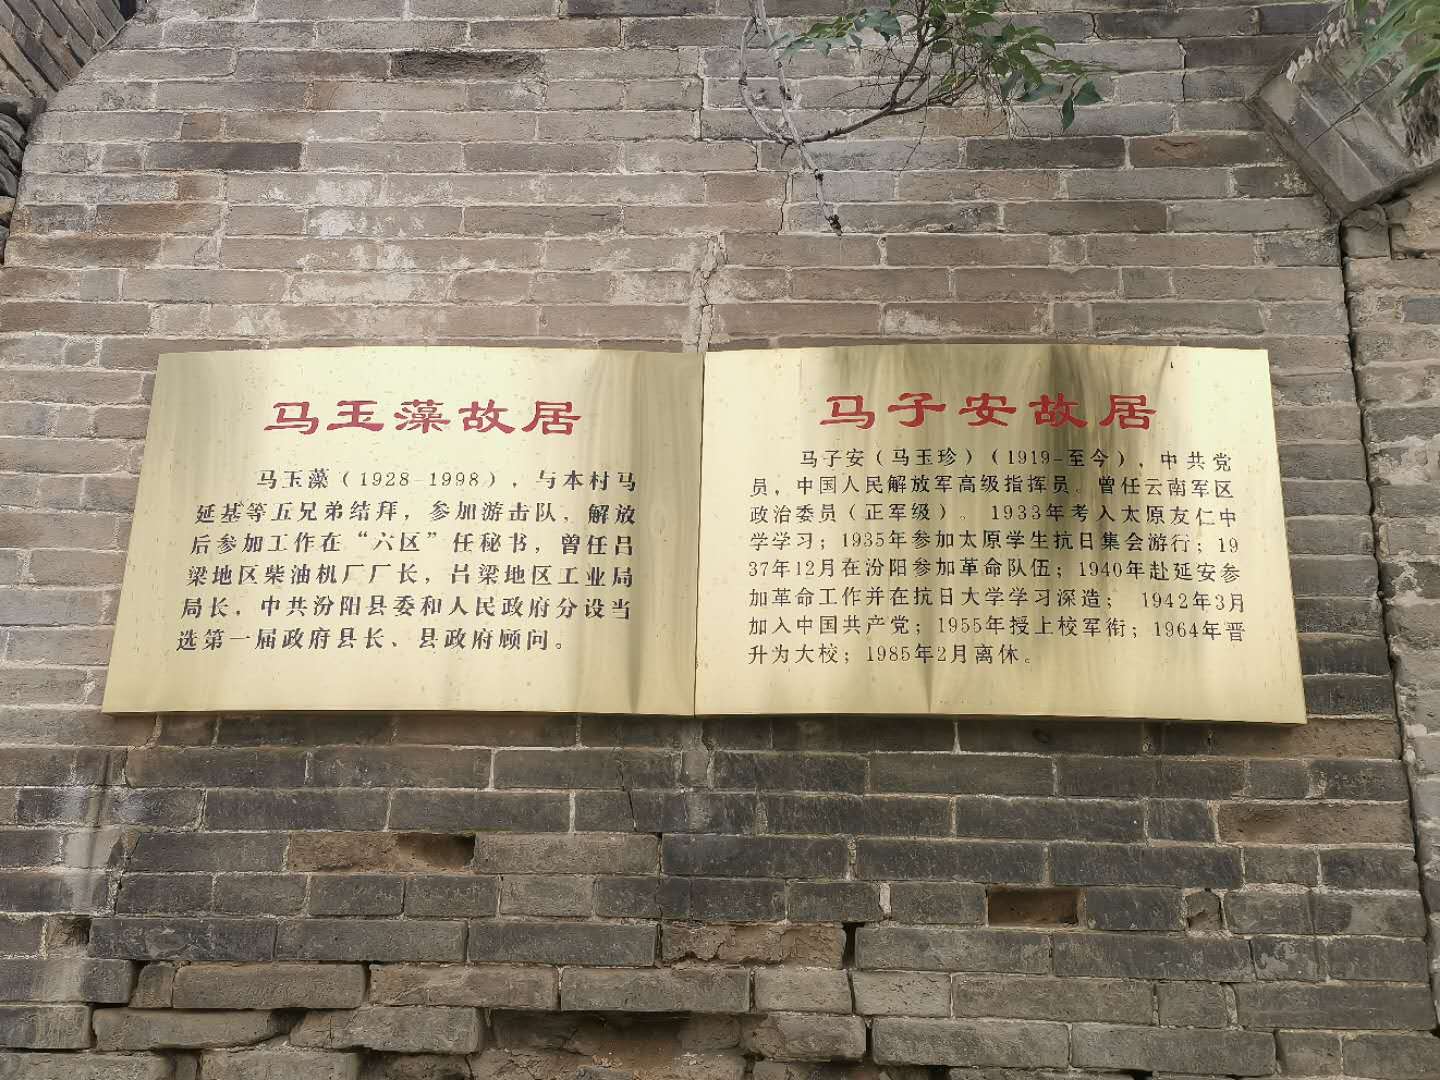 马玉藻故居
马玉藻（1928-1998），与本村马
延基等五兄弟结拜，参加游击队，解放
后参加工作在“六区”任秘书，曾任吕
梁地区柴油机厂厂长，吕梁地区工业局
局长，中共汾阳县委和人民政府分设当
选第一届政府县长、县政府顾问。
马子安故居
马子安（马玉珍）（1919-至今），中共党
员，中国人民解放军高级指挥员。曾任云南军区
政治委员（正军级）。 1933年考入太原友仁中
学学习；1935年参加太原学生抗日集会游行；19
37年12月在汾阳参加革命队伍；1940年赴延安参
加革命工作并在抗日大学学习深造； 1942年3月
加入中国共产党；1955年授上校军衔；1964年晋
升为大校；1985年2月离休。